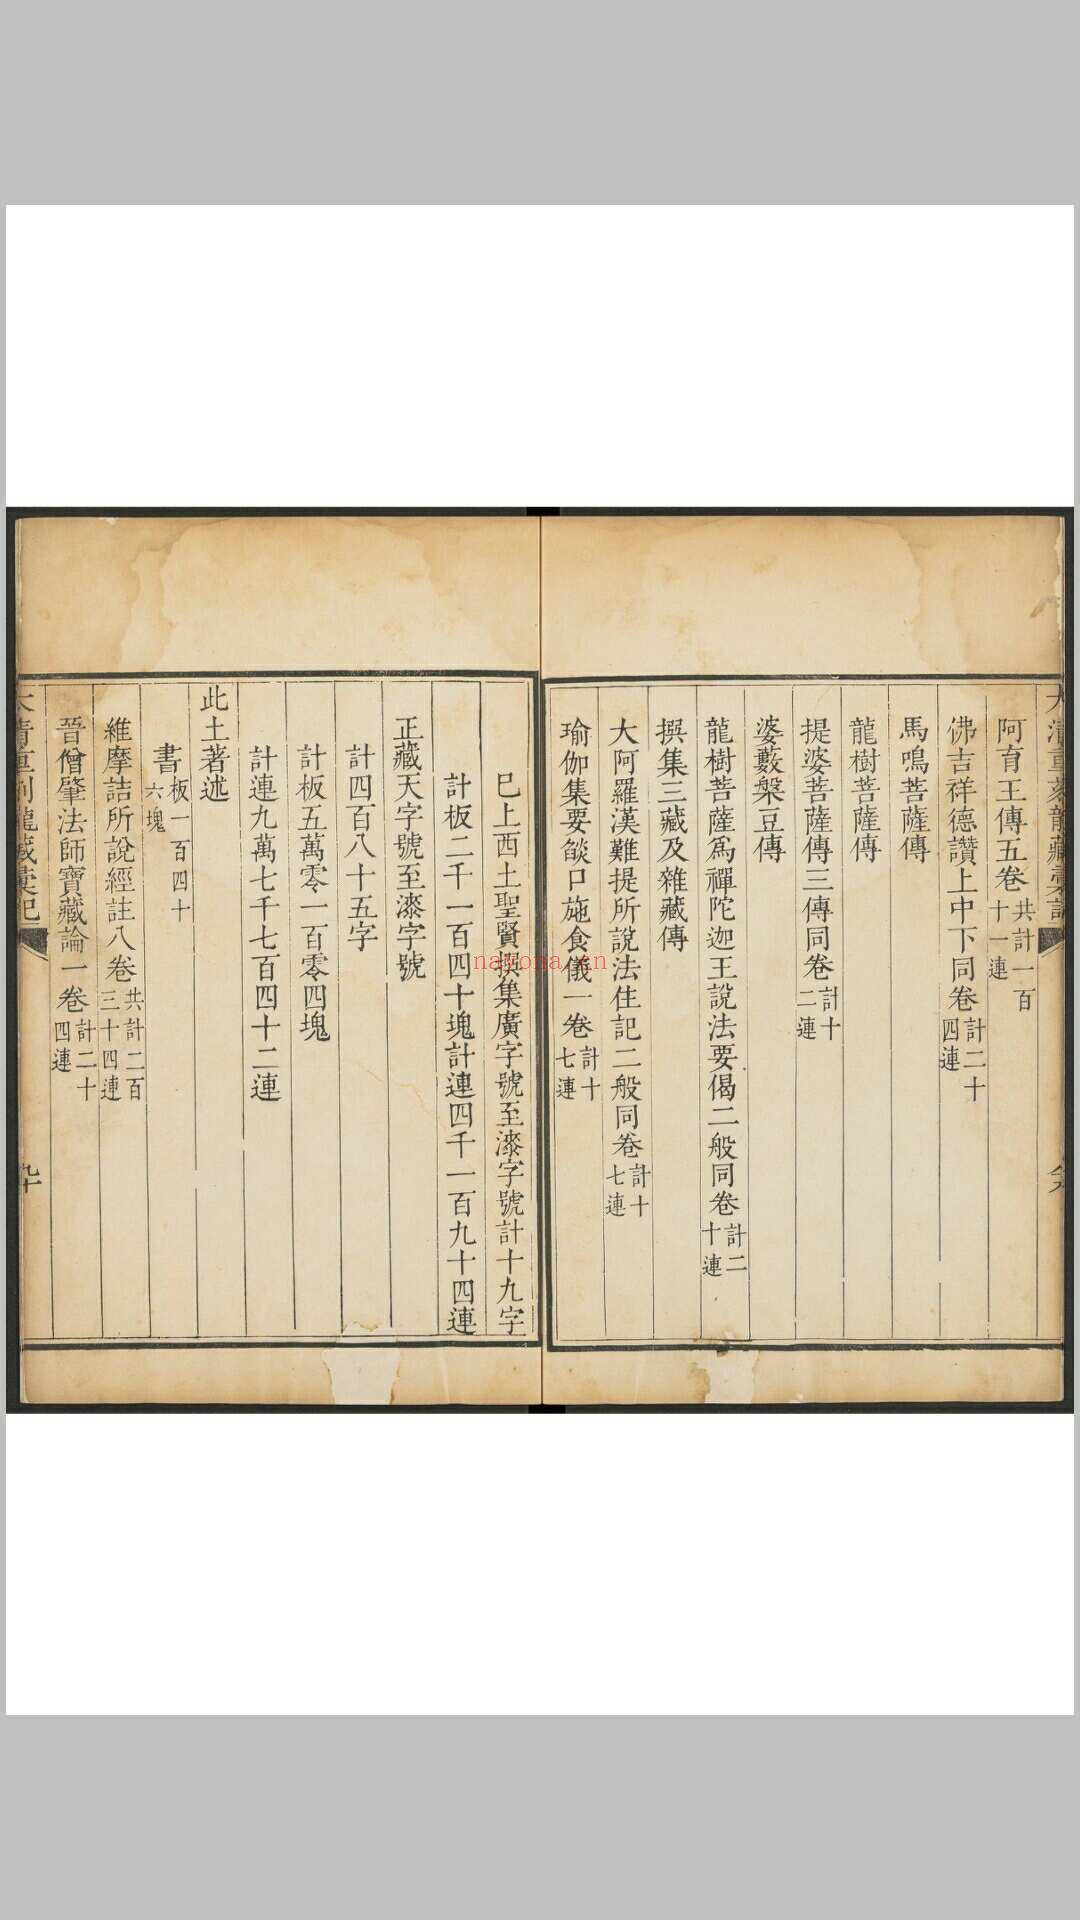 阿育王傳五卷共計一百十一連
佛吉祥德讚上中下同卷計二十四連
馬鳴菩薩傳
龍樹菩薩傳
提婆菩薩傳三傳同卷計十二連
婆藪槃豆傳
龍樹菩薩爲禪陀迦王說法要偈二般同卷計二十連
撰集三藏及雜藏傳
大阿羅漢難提所說法住記二般同卷計十七連
瑜伽集要燄口施食儀一卷計十七連
巳上西土聖賢撰集廣字號至漆字號計十九字
計板二千一百四十塊計連四千一百九十四連
正藏天字號至漆字號
計四百八十五字
計板五萬零一百零四塊
計連九萬七千七百四十二連
此土著述
書板一百四十六塊
維摩詰所說經註八卷共計二百三十四連
晉僧肇法師寶藏論一卷計二十四連
nayona.cn